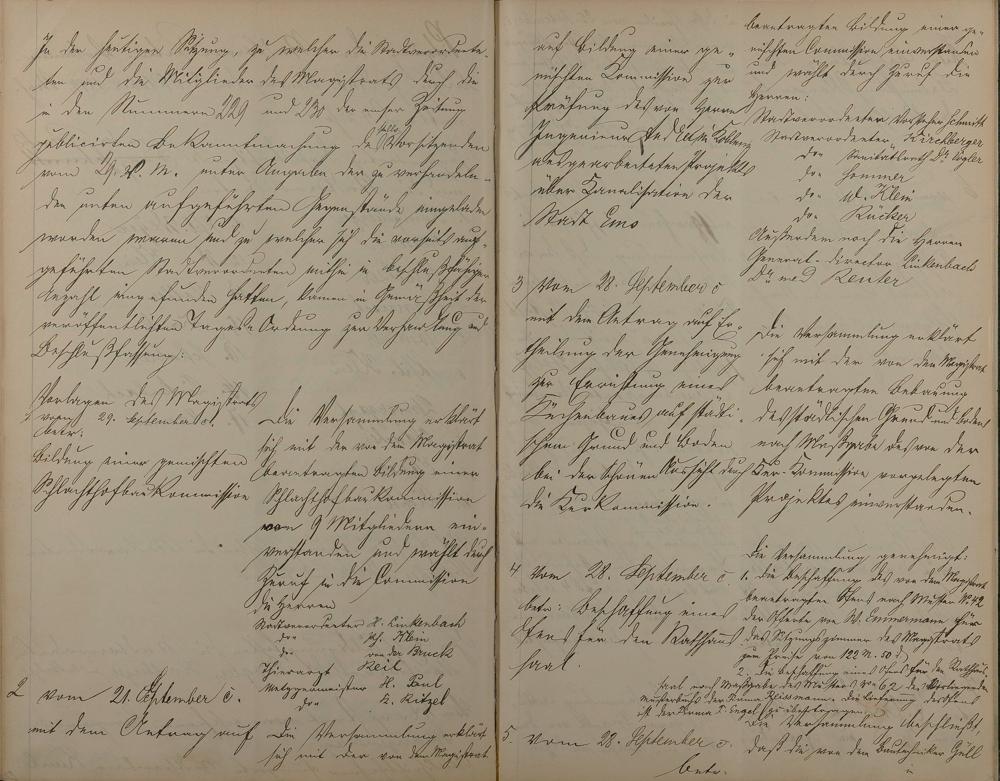 In der heutigen Sitzung, zu welcher die Stadtverordne-
ten und die Mitglieder des Magistrats durch die
in den Nummern 229 und 230 der Emser Zeitung
publicirten Bekanntmachung des Vorsitzenden
vom 29. v. M. unter Angabe der zu verhandeln-
den unten aufgeführten Gegenstände eingeladen
worden waren und zu welcher sich die vorseits auf-
geführten Stadtverordneten mithin in beschlußfähiger
Anzahl eingefunden hatten, kamen in Gemäßheit der
veröffentlichten Tages-Ordnung zur Verhandlung und
Beschlußfassung:
Vorlagen des Magistrats
1 vom 29. September
betr.
Bildung einer gemischten
Schlachthofbau Kommission
Die Versammlung erklärt
sich mit der von dem Magistrat
beantragten Bildung einer
Schlachthofbaukommission
von 9 Mitgliedern ein-
verstanden und wählt durch
Zuruf in die Commission
die Herren
Stadtverordneter H. Linkenbach
do Klein
do von der Bruck
Thierarzt Keil
Metzgermeister H. Paul
do Kitzel
2 vom 21. September c.
mit dem Antrag auf
Die Versammlung erklärt
sich mit der von dem Magistrat
auf Bildung einer ge-
mischten Kommission zur
Prüfung des von Herrn
Ingenieur
ausgearbeiteten Projekts
über Canalisation der
Stadt Ems
beantragten Bildung einer ge-
mischten Commission einverstanden
und wählt durch Zuruf die
Herren:
Stadtverordneten Vorsteher Schmitt
Stadtverordneter Kirchberger
do Sanitätsrath Dr Vogler
do Sommer
do W. Klein
do Rücker
Außerdem noch die Herren
General-director Linkenbach
Dr med Reuter
3 vom 28. September c
mit dem Antrag auf Er-
theilung der Genehmigung
zur Errichtung eines
Küchenbaues auf städti-
schen Grund und Boden
bei der schönen Aussicht durch
die Kurkommission.
Die Versammlung erklärt
sich mit der von dem Magistrat
beantragten Bebauung
des städtischen Grund und Bodens
nach Maßgabe des von der
Kur-Kommission vorgelegten
Projektes einverstanden.
4 vom 28. September c.
betr: Beschaffung eines
Ofens für den Rathhaus-
saal.
Die Versammlung genehmigt:
1. Die Beschaffung des von dem Magistrat
beantragten Ofens nach Muster No 42
der Offerte von W. Emmermann für
das Sitzungszimmer des Magistrats
zum Preise von 122 M. 50 d
2. Die Beschaffung eines Ofens für den Rathhaus-
saal nach Maßgabe des Musters No 62 des vorliegenden
Musterbuchs der Firma Die Lieferung desselben
ist der Firma T. Engel zu übertragen.
5 vom 28. September c.
betr.
Die Versammlung beschließt,
daß die von dem Bautechniker Gull